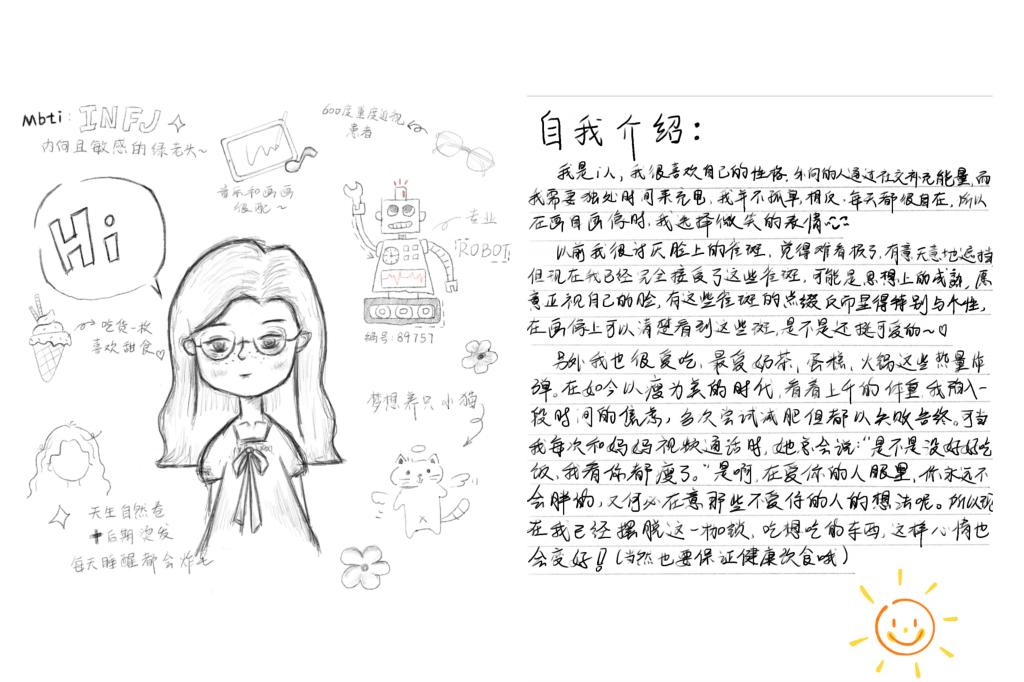 Mbti: INFJ
内向且敏感的绿老头~
600度重度近视
患者
音乐和画画
很配~
Hi
专业
ROBOT
编号:89757
吃货一枚
喜欢甜食
梦想养只小猫
天生自然卷
+后期烫发
每天睡醒都会炸毛
自我介绍:
我是i人,我很喜欢自己的性格.外向的人通过社交补充能量,而
我需要独处时间来充电,我并不孤单,相反,每天都很自在,所以
在画自画像时,我选择微笑的表情
以前我很讨厌脸上的雀斑,觉得难看极了,有意无意地遮挡
但现在我已经完全接受了这些雀斑,可能是思想上的成熟,愿
意正视自己的脸,有这些雀斑的点缀反而显得特别与个性,
在画像上可以清楚看到这些斑,是不是还挺可爱的~
另外我也很爱吃,最爱奶茶,蛋糕,火锅这些热量炸
弹.在如今以瘦为美的时代,看着上千的体重,我陷入一
段时间的焦虑,多次尝试减肥但都以失败告终.可当
我每次和妈妈视频通话时,她总会说:"是不是没好好吃
饭,我看你都瘦了."是啊,在爱你的人眼里,你永远不
会胖的,又何必在意那些不爱你的人的想法呢.所以现
在我已经摆脱这一枷锁,吃想吃的东西,这样心情也
会变好!(当然也要保证健康饮食哦)